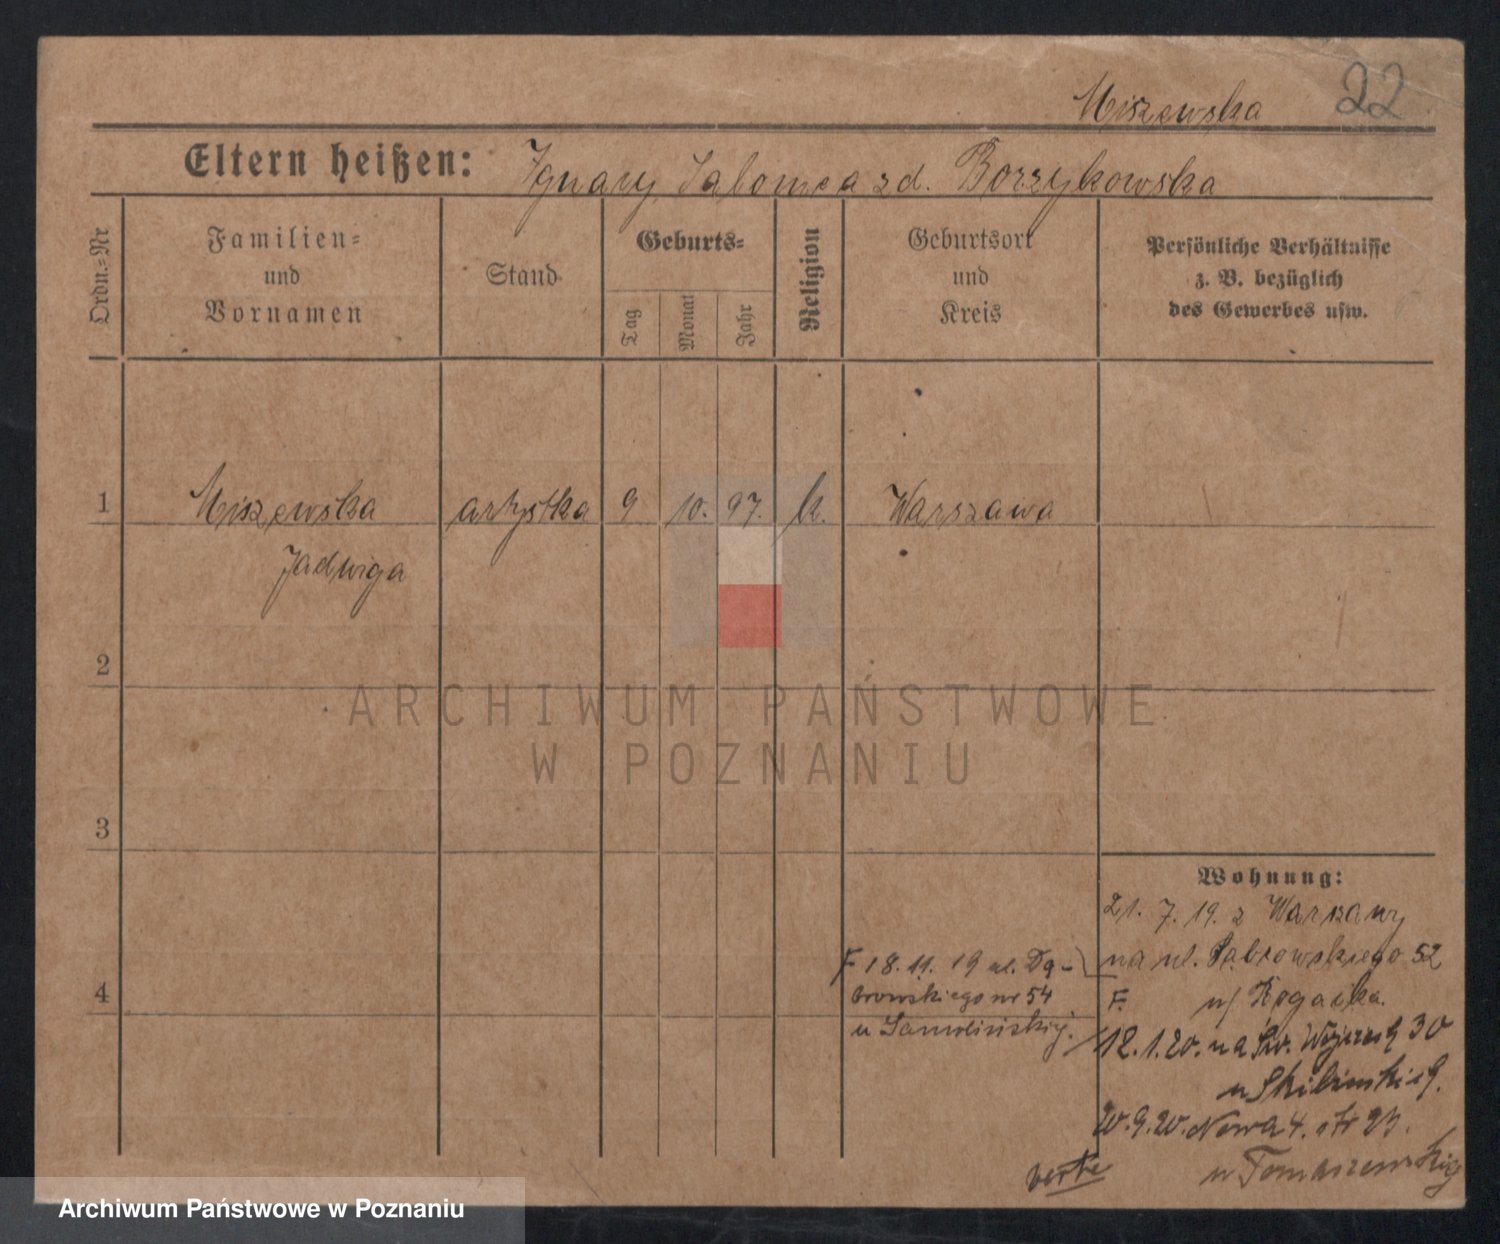 Miszewska 22
Eltern heißen: Ignacy, Salomea zd. Borzykowska
Ordn.=Nr
Familien=
und
Vornamen
Stand
Geburts=
Tag
Monat
Jahr
Religion
Geburtsort
und
Kreis
Persönliche Verhältnisse
z. B. bezüglich
des Gewerbes usw.
1 Miszewska artystka 9 10. 97. k. Warszawa
Jadwiga
2
ARCHIWUM PAŃSTWOWE
W POZNANIU
3
Wohnung:
21. 7. 19. z Warszawy
na ul. Dąbrowskiego 52
F. u/
F 18. 11. 19 ul. Dą-
browskiego nr 54
u
4
12. 1. 20. na Św. Wojciech 30
u
20. 9. 20. Nowa 4.
u Tomaszewskiej
verte
Archiwum Państwowe w Poznaniu